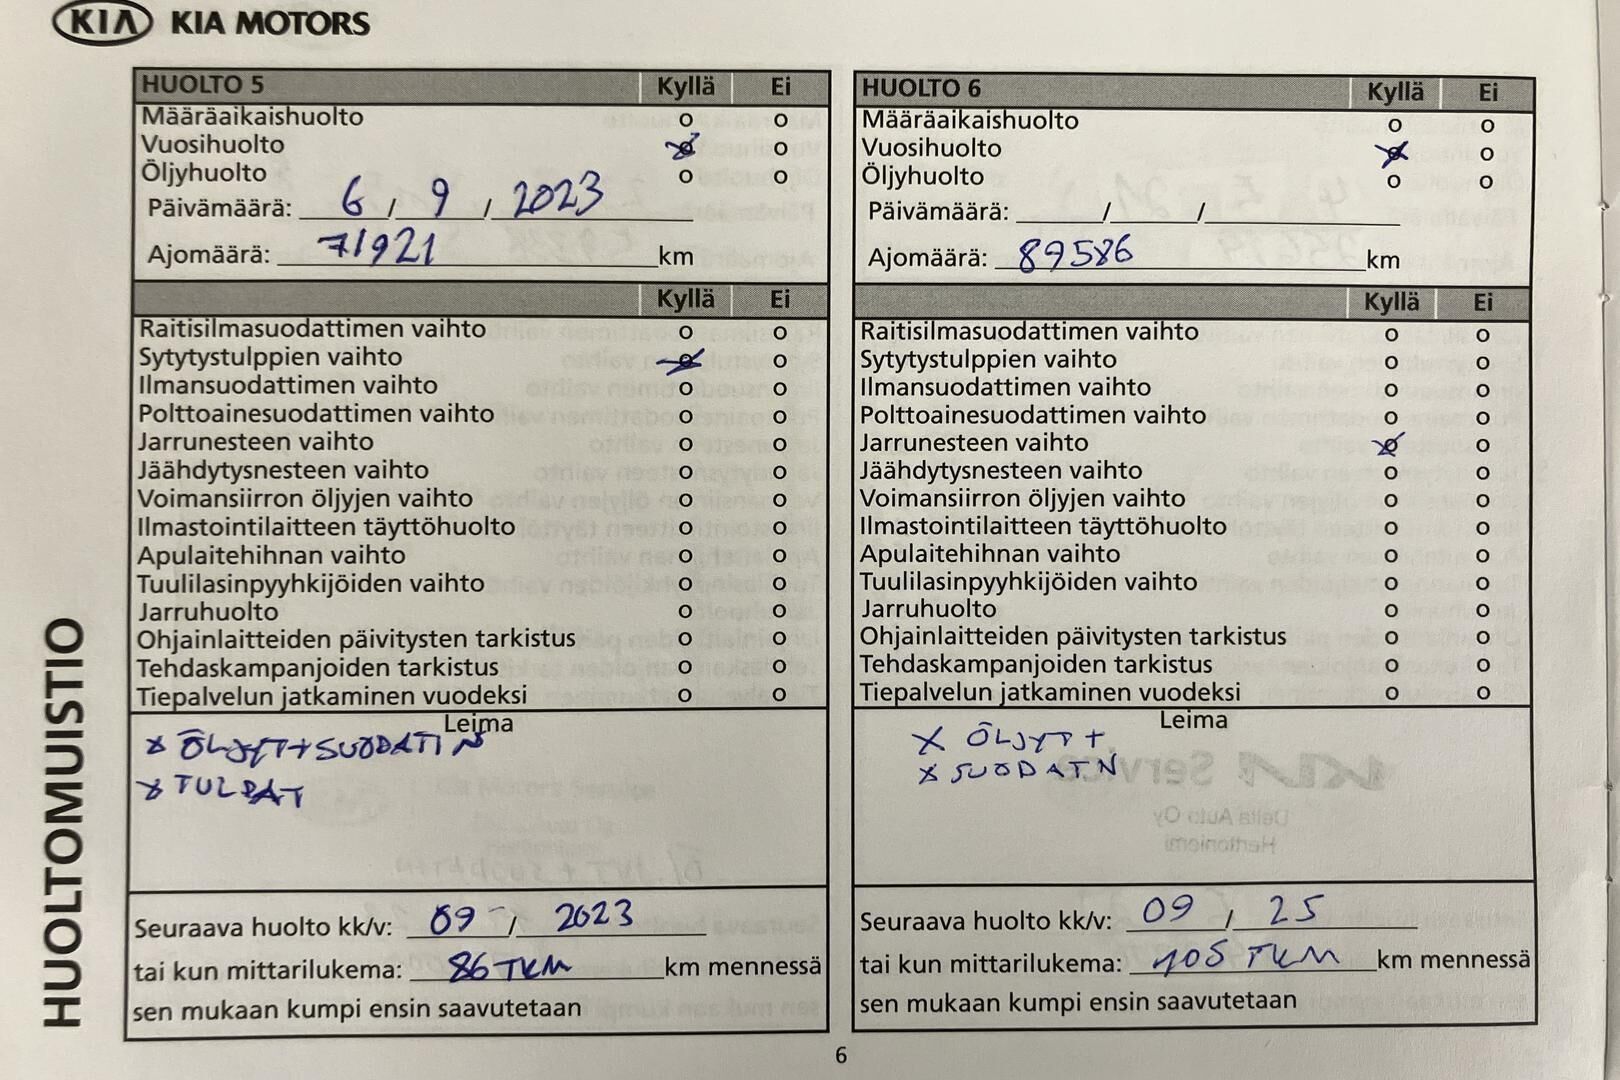 KIA KIA MOTORS
HUOLTOMUISTIO
HUOLTO 5 Kyllä Ei
Määräaikaishuolto o o
Vuosihuolto o o
Öljyhuolto o o
Päivämäärä: 6 / 9 / 2023
Ajomäärä: 71921 km
Kyllä Ei
Raitisilmasuodattimen vaihto o o
Sytytystulppien vaihto o o
Ilmansuodattimen vaihto o o
Polttoainesuodattimen vaihto o o
Jarrunesteen vaihto o o
Jäähdytysnesteen vaihto o o
Voimansiirron öljyjen vaihto o o
Ilmastointilaitteen täyttöhuolto o o
Apulaitehihnan vaihto o o
Tuulilasinpyyhkijöiden vaihto o o
Jarruhuolto o o
Ohjainlaitteiden päivitysten tarkistus o o
Tehdaskampanjoiden tarkistus o o
Tiepalvelun jatkaminen vuodeksi o o
Leima
x ÖLJYT+SUODATIN
x TULPAT
Seuraava huolto kk/v: 09 / 2023
tai kun mittarilukema: 86 TKM km mennessä
sen mukaan kumpi ensin saavutetaan
HUOLTO 6 Kyllä Ei
Määräaikaishuolto o o
Vuosihuolto o o
Öljyhuolto o o
Päivämäärä: / /
Ajomäärä: 89586 km
Kyllä Ei
Raitisilmasuodattimen vaihto o o
Sytytystulppien vaihto o o
Ilmansuodattimen vaihto o o
Polttoainesuodattimen vaihto o o
Jarrunesteen vaihto o o
Jäähdytysnesteen vaihto o o
Voimansiirron öljyjen vaihto o o
Ilmastointilaitteen täyttöhuolto o o
Apulaitehihnan vaihto o o
Tuulilasinpyyhkijöiden vaihto o o
Jarruhuolto o o
Ohjainlaitteiden päivitysten tarkistus o o
Tehdaskampanjoiden tarkistus o o
Tiepalvelun jatkaminen vuodeksi o o
Leima
x ÖLJYT +
x SUODATN
Seuraava huolto kk/v: 09 / 25
tai kun mittarilukema: 105 TKM km mennessä
sen mukaan kumpi ensin saavutetaan
6